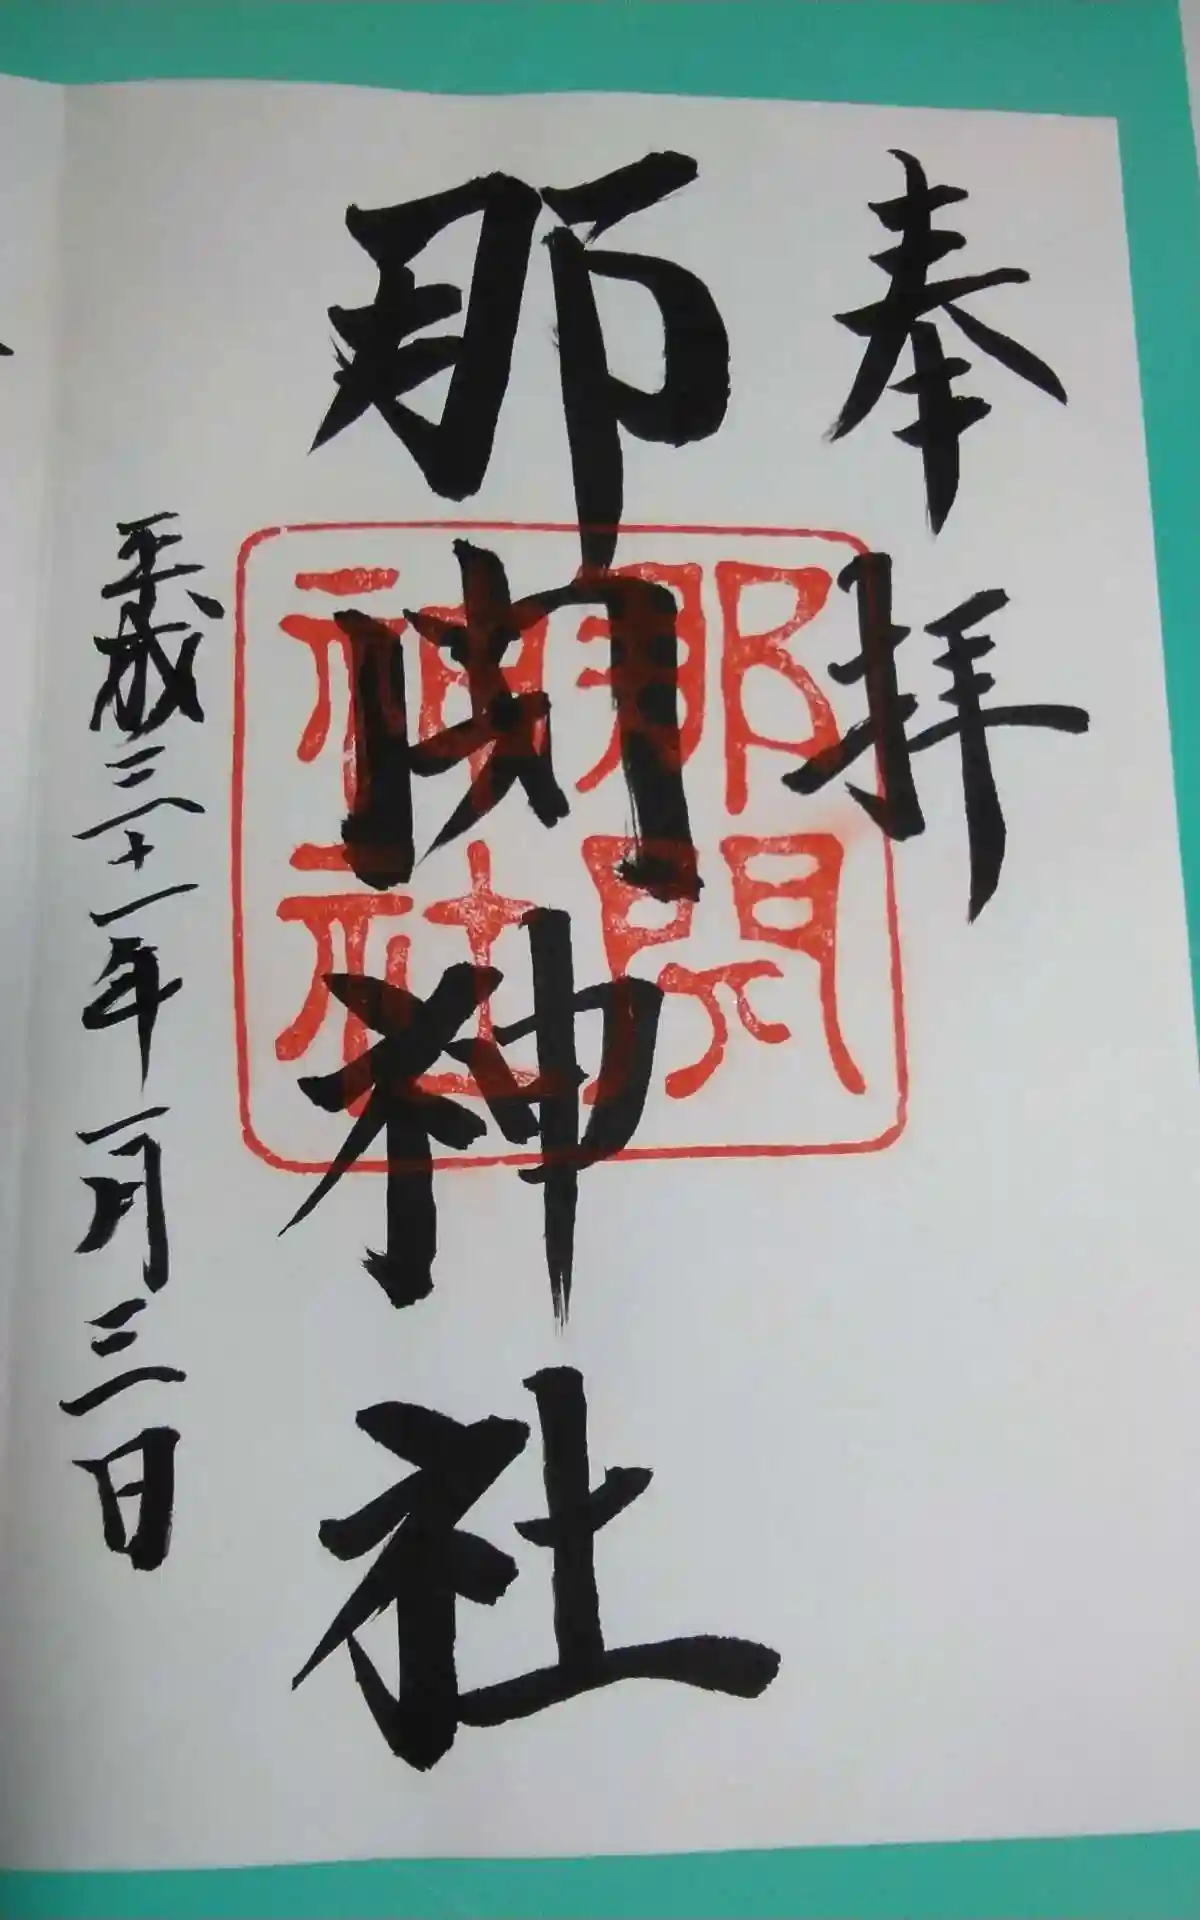 奉拝
那閉神社
平成三十一年一月三日
那閉
神社